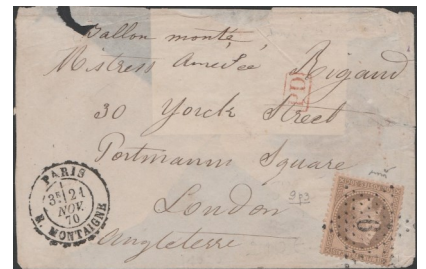 Ballon monté
Mistress Amedée Rigaud
PD
30 Yorck Street
Portmann Square
London
Angleterre
PARIS
3E 24
NOV.
70
R. MONTAIGNE